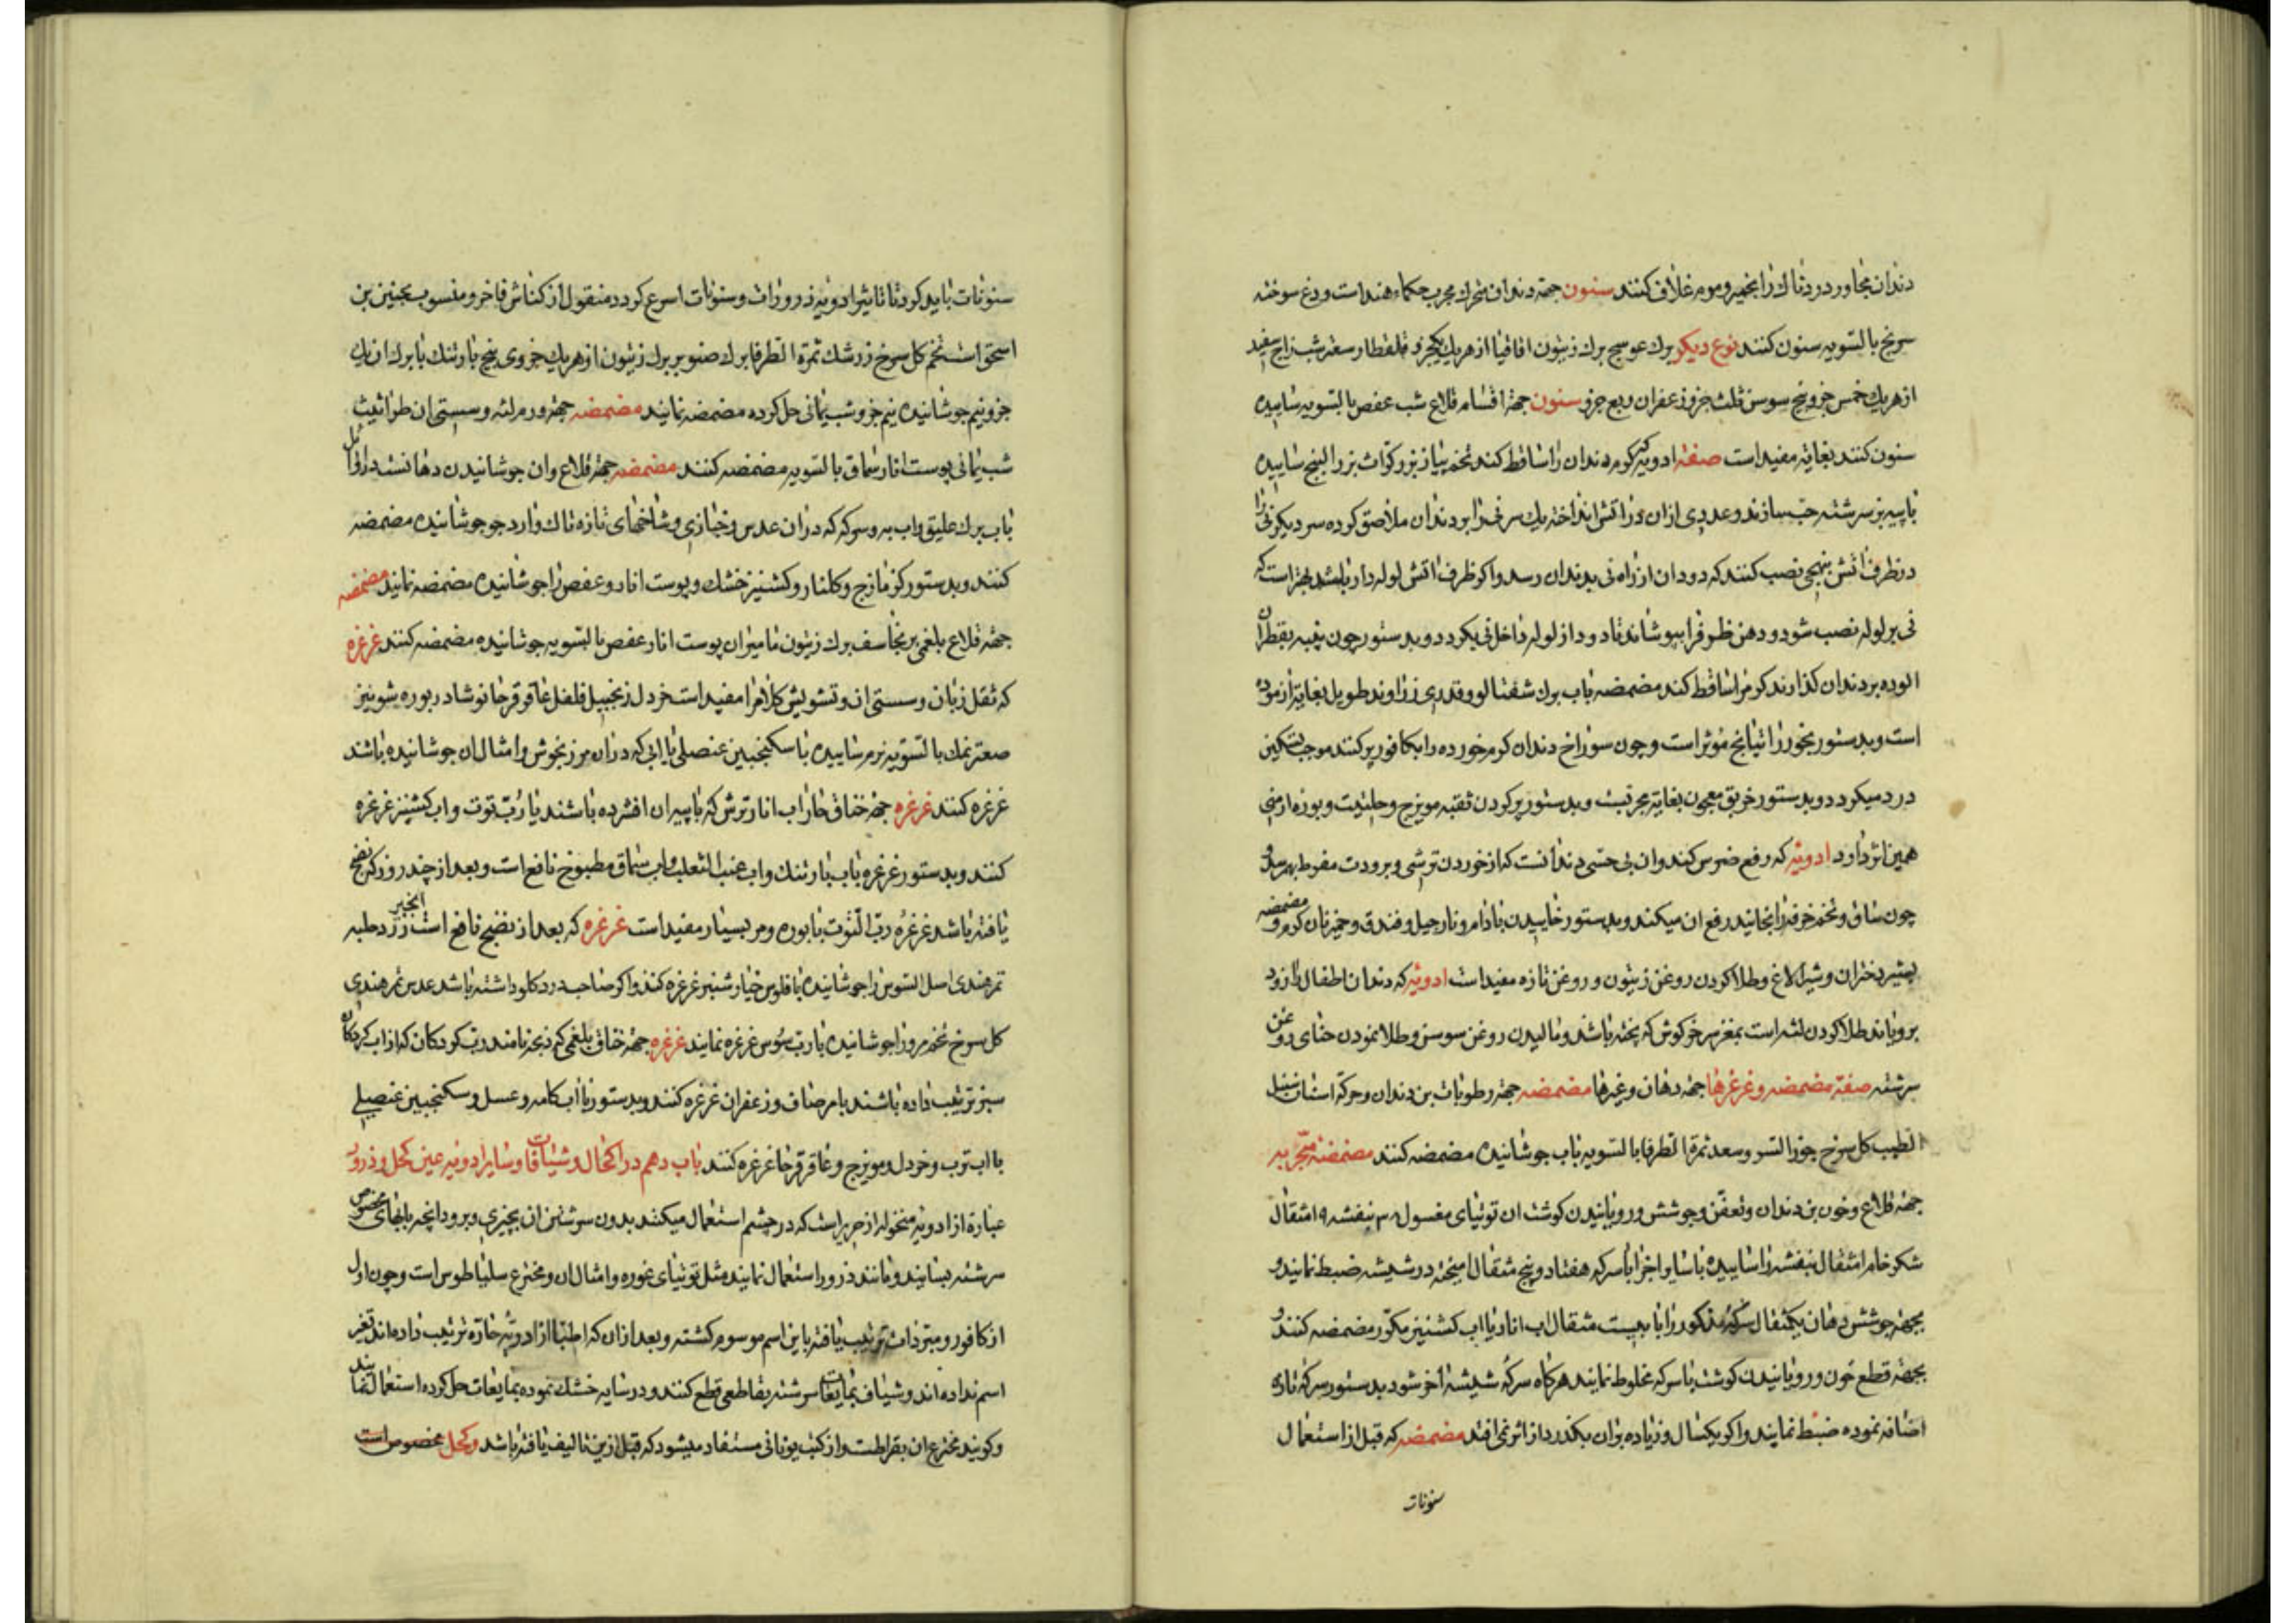 دندان مجاور دردناك را بخمیر و موم غلاف کنند سنون جهة دندان متحرك مجرب حکماء هند است ودع سوخته
سرنج بالسویه سنون کنند نوع دیکر برك عوسج برك زیتون اقاقیا از هریك یکجزو قلقطار سعتر شب زاج سفید
از هریك خمس جزو بیخ سوسن ثلث جزو زعفران ربع جزو سنون جهة اقسام قلاع شب عفص بالسویه ساییده
سنون کنند بغایة مفید است صفة ادویه که کرم دندان را ساقط کند تخم پیاز بزر کراث بزر البنج ساییده
با پیه بز سرشته حب سازند و عددی از ان در اتش انداخته یك سر نی را بر دندان ملاصق کرده سر دیکر نی را
در ظرف اتش بنهجی نصب کنند که دود ان از راه نی بدندان رسد و اکر ظرف اتش لوله دار باشد بهتر است که
نی بر لوله نصب شود و دهن ظرف را بپوشانند تا دود از لوله داخل نی بکردد و بدستور چون پنبه بقطران
الوده بر دندان کذارند کرم را ساقط کند مضمضه باب برك شفتالو و قدری زراوند طویل بغایة ازموده
است و بدستور بخور راتیانج مؤثر است و چون سوراخ دندان کرم خورده را بکافور پر کنند موجب تسکین
درد میکردد و بدستور خربق معجون بغایة مجربست و بدستور پر کردن ثقبه مویزج و حلتیت و بوره ارمنی
همین اثر دارد ادویه که رفع ضرس کند و ان بی حسی دندانست که از خوردن ترشی و برودت مفرط بهم رسد و
چون ساق و تخم خرفه را بخایند رفع ان میکند و بدستور خاییدن بادام و نارجیل و فندق و خمیر نان کرم و مضمضه
بشیر دختران و شیر الاغ و طلا کردن روغن زیتون و روغن تازه مفید است ادویه که دندان اطفال را زود
برویاند طلا کردن لثه است بمغز سر خرکوش که پخته باشد و مالیدن روغن سوسن و طلا نمودن حنای روغن
سرشته صفة مضمضه و غرغرها جهة دهان و غیرها مضمضه جهة رطوبات بن دندان و حرکة اسنان سنبل
الطیب کل سرخ جوز السرو سعد ثمرة الطرفا بالسویه باب جوشانیده مضمضه کنند مضمضه مجربه
جهة قلاع و خون بن دندان و تعفن و جوشش و رویانیدن کوشت ان توتیای مغسول ۳م بنفشه ۹ مثقال
شکر خام مثقال بنفشه را ساییده با سایر اجزا با سرکه هفتاد و پنج مثقال امیخته در شیشه ضبط نمایند و
بجهة جوشش دهان یکمثقال سرکه مذکور را با بیست مثقال اب انار یا اب کشنیز مکرر مضمضه کنند و
بجهة قطع خون و رویانیدن کوشت با سرکه مخلوط نمایند هرکاه سرکه شیشه اخر شود بدستور سرکه تازه
اضافه نموده ضبط نمایند و اکر یکسال و زیاده بران بکذرد از اثر نمی افتد مضمضه که قبل از استعمال
سنونات
سنونات باید کرد تا تاثیر ادویه ذرورات و سنونات اسرع کردد منقول از کناش فاخر و منسوب بحنین بن
اسحق است تخم کل سرخ زرشك ثمرة الطرفا برك صنوبر برك زیتون از هریك جزوی بیخ بارتنك یا برك ان یك
جزو نیم جوشانیده نیم جزو شب یمانی حل کرده مضمضه نمایند مضمضه جهة ورم لثه و سستی ان طراثیث
شب یمانی پوست انار سماق بالسویه مضمضه کنند مضمضه جهة قلاع و ان جوشانیدن دهانست در اوایل
باب برك علیق و اب به و سرکه که در ان عدس و خبازی و شاخهای تازه تاك و ارد جو جوشانیده مضمضه
کنند و بدستور کزمازج و کلنار و کشنیز خشك و پوست انار و عفص را جوشانیده مضمضه نمایند مضمضه
جهة قلاع بلغمی برنجاسف برك زیتون مامیران پوست انار عفص بالسویه جوشانیده مضمضه کنند غرغره
که ثقل زبان و سستی ان و تشویش کلام را مفید است خردل زنجبیل فلفل عاقرقرحا نوشادر بوره شونیز
صعتر نمك بالسویه نرم ساییده با سکنجبین عنصلی یا ابی که در ان مرزنجوش و امثال ان جوشانیده باشند
غرغره کنند غرغره جهة خناق حار اب انار ترش که با پیه ان افشرده باشند یا رب توت و اب کشنیز غرغره
کنند و بدستور غرغره باب بارتنك و اب عنب الثعلب و اب سماق مطبوخ نافع است و بعد از چند روز که نضج
یافته باشد غرغره رب التوت با بوره و مر بسیار مفید است غرغره که بعد از نضج نافع است انجیر زرد حلبه
تمر هندی اصل السوس را جوشانیده با فلوس خیار شنبر غرغره کنند و اکر صاحب درد کلو داشته باشد عدس تمر هندی
کل سرخ تخم مرو را جوشانیده با رب سوس غرغره نمایند غرغره جهة خناق بلغمی که ذبحه نامند رب کردکان که از اب کردکان
سبز ترتیب داده باشند با مر صاف و زعفران غرغره کنند و بدستور با اب کامه و عسل و سکنجبین عنصلی
با اب ترب و خردل و مویزج و عاقرقرحا غرغره کنند باب دهم در اکحال و شیافات و سایر ادویه عین کحل و ذرور
عبارة از ادویه منخوله از حریر است که در چشم استعمال میکنند بدون سرشتن ان بچیزی و برود انچه بابهای مخصوص
سرشته بسایند و مانند ذرور استعمال نمایند مثل توتیای غوره و امثال ان و مخترع سلیاطوس است و چون اول
از کافور و مبردات ترتیب یافته باین اسم موسوم کشته و بعد از ان که اطبا از ادویه حاره ترتیب داده اند تغیر
اسم نداده اند و شیاف بمایعات سرشته بقاطعی قطع کنند و در سایه خشك نموده بمایعات حل کرده استعمال نمایند
و کویند مخترع ان بقراطست و از کتب یونانی مستفاد میشود که قبل ازین تالیف یافته باشد و کحل مخصوص است